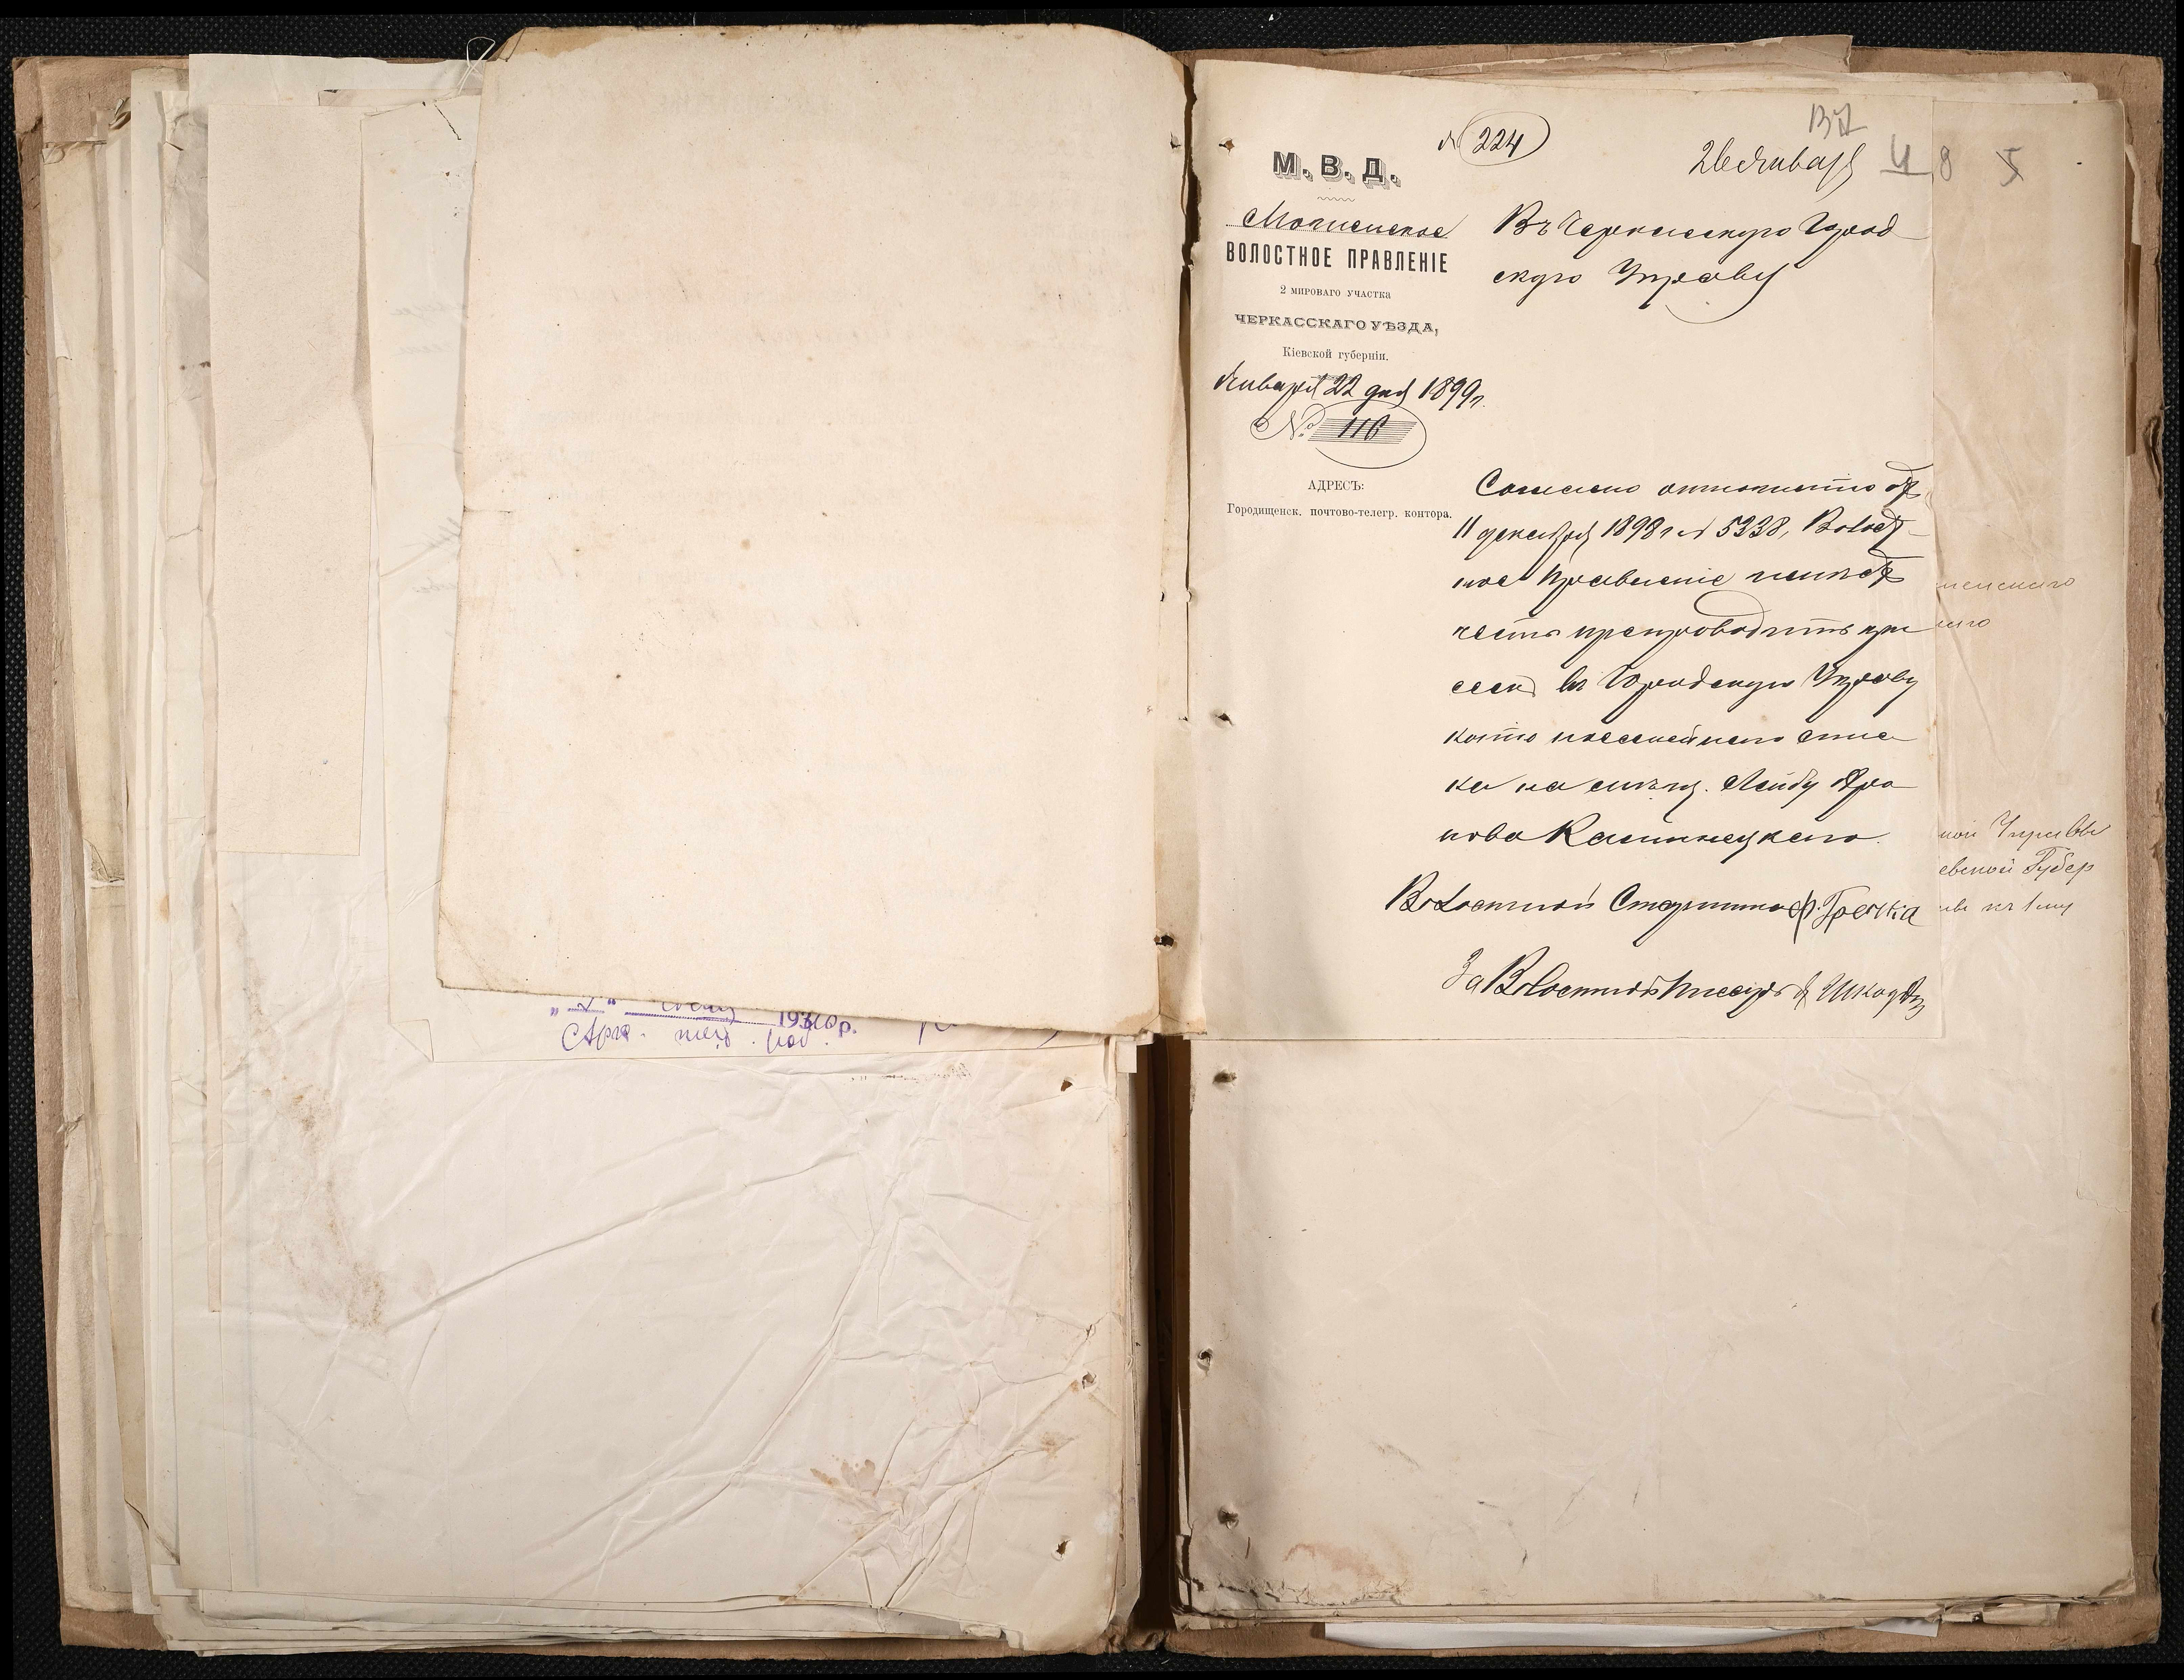 № 224
26 Января
4 8 5
М. В. Д.
Мошенское
ВОЛОСТНОЕ ПРАВЛЕНІЕ
2 МИРОВАГО УЧАСТКА
ЧЕРКАССКАГО УѢЗДА,
Кіевской губерніи.
Января 22 дня 1899 г.
№ 116
АДРЕСЪ:
Городищенск. почтово-телегр. контора.
Въ Черкасскую Город
скую Управу
Согласно отношенію отъ
11 декабря 1898 г № 5338, Волост-
ное Правленіе имѣетъ
честь препроводить при
семъ въ Городскую Управу
копію посемейнаго спис
ка на мѣщ. Лейбу Аро
нова Каминецкаго.
Волостной Старшина Гречка
За Волостной Писарь
менскаго
ной Управы
евской Губер
19 р.